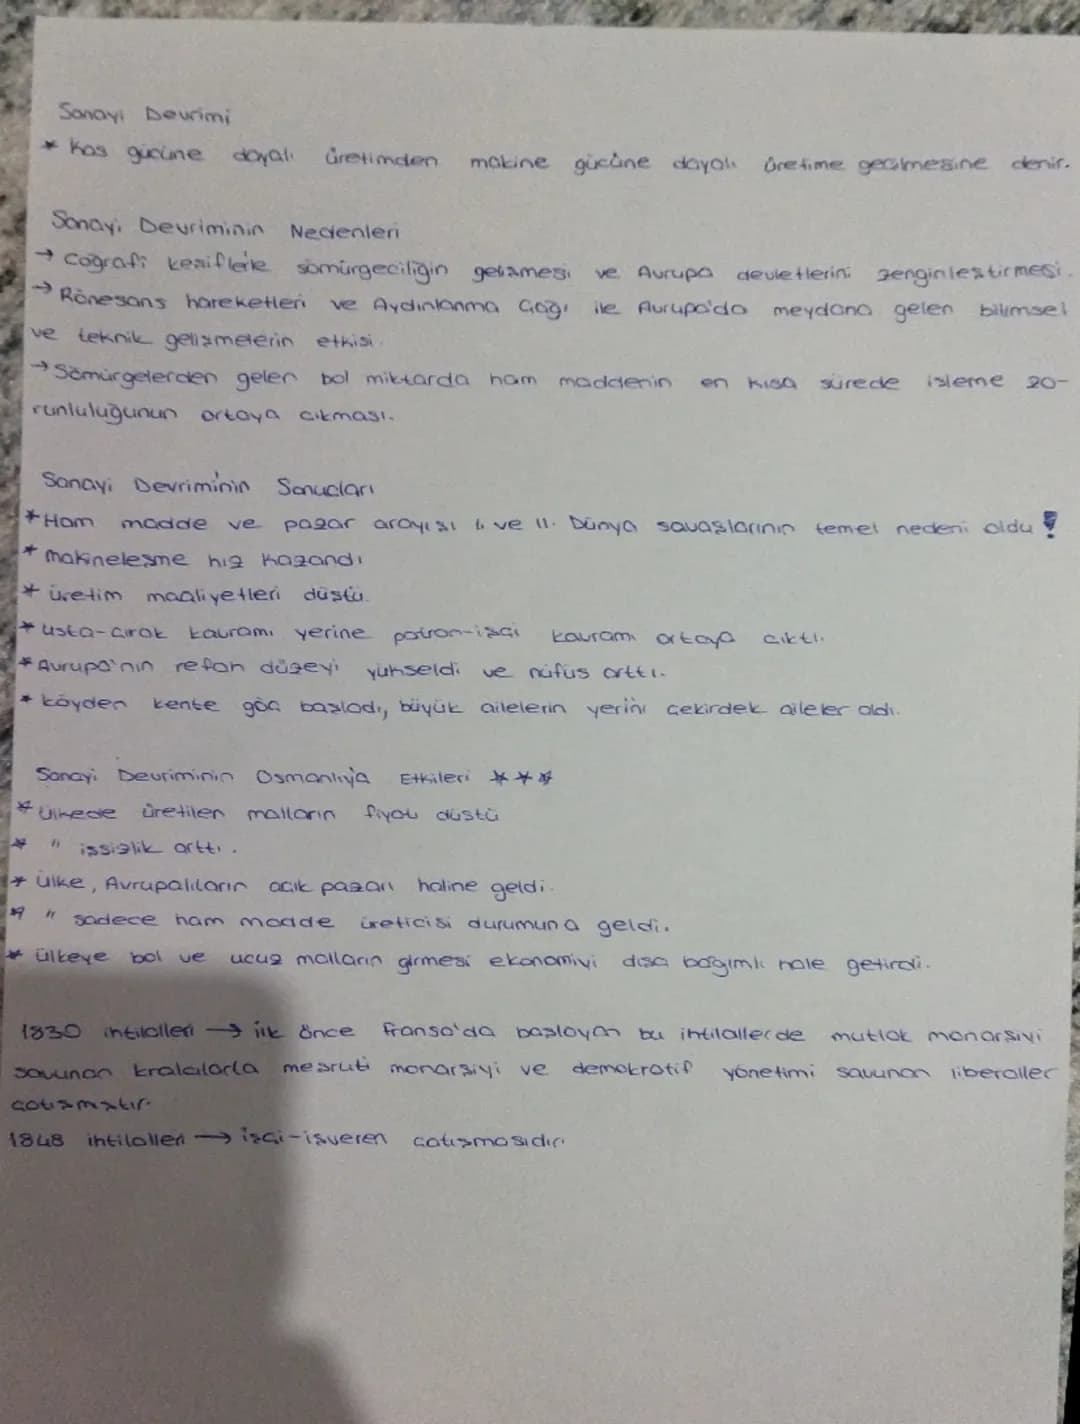 Sanayi Devrimi
* Kas gücüne dayalı üretimden makine gücüne dayalı üretime geçilmesine denir.
Sanayi Devriminin Nedenleri
→ Coğrafi keşiflerle sömürgeciliğin gelişmesi ve Avrupa devletlerini zenginleştirmesi.
→ Rönesans hareketleri ve Aydınlanma Çağı ile Avrupa'da meydana gelen bilimsel
ve teknik gelişmelerin etkisi.
→ Sömürgelerden gelen bol miktarda ham maddenin en kısa sürede işleme zo-
runluluğunun ortaya çıkması.
Sanayi Devriminin Sonuçları
* Ham madde ve pazar arayışı I. ve II. Dünya savaşlarının temel nedeni oldu!
* makineleşme hız kazandı
* üretim maaliyetleri düştü.
* usta-çırak kavramı yerine patron-işçi kavramı ortaya çıktı.
* Avrupa'nın refah düzeyi yükseldi ve nüfus arttı.
* köyden kente göç başladı, büyük ailelerin yerini çekirdek aileler aldı.
Sanayi Devriminin Osmanlıya Etkileri ***
* ülkede üretilen malların fiyatı düştü
* " işsizlik arttı.
* ülke, Avrupalıların açık pazarı haline geldi.
* " sadece ham madde üreticisi durumuna geldi.
* ülkeye bol ve ucuz malların girmesi ekonomiyi dışa bağımlı hale getirdi.
1830 ihtilalleri → ilk önce Fransa'da başlayan bu ihtilallerde mutlak monarşiyi
savunan kralcılarla meşruti monarşiyi ve demokratif yönetimi savunan liberaller
çatışmıştır.
1848 ihtilalleri → işçi-işveren çatışmasıdır.